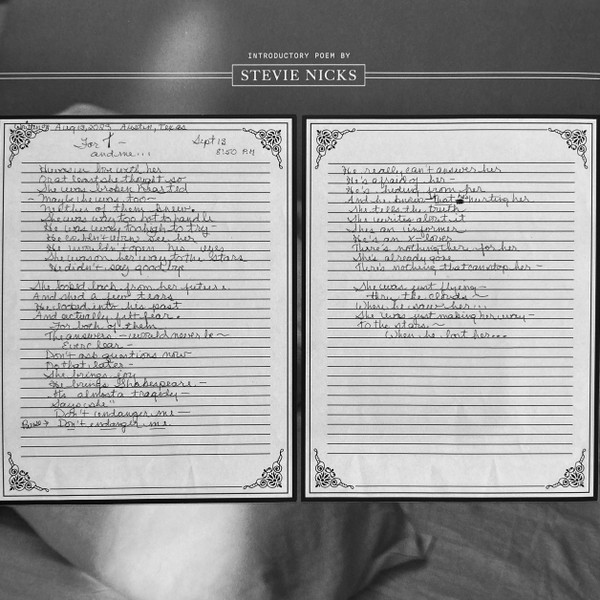 INTRODUCTORY POEM BY
STEVIE NICKS
Written Aug 13, 2023 Austin, Texas
For T ~
and me...
Sept 12
8:50 P.M
He was in love with her
Or at least she thought so
She was broken hearted
- Maybe he was too -
Neither of them knew.
She was way too hot to handle
He was way too high to try -
He couldn't even see her
He wouldn't open his eyes
She was on her way to the stars
He didn't say goodbye
She looked back from her future
And shed a few tears
He looked into his past
And actually felt fear.
For both of them
The answers - would never be ~
Ever clear -
Don't ask questions now
Do that later -
She brings joy
He brings Shakespeare -
It's almost a tragedy -
Says she "
Don't endanger me -
Don't endanger me
He really can't answer her
He's afraid of her -
He's hiding from her
And he knows that he's hurting her
She tells the truth
She writes about it
She's an informer
He's an x-lover
There's nothing there for her
She's already gone
There's nothing that can stop her -
She was just flying -
Thru the clouds ~
When he saw her...
She was just making her way -
To the stars ~
When he lost her...